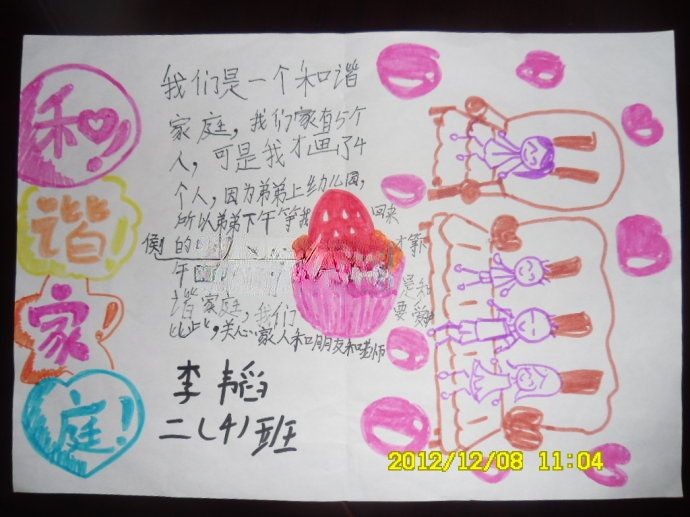 和
谐
家
庭!
我们是一个和谐
家庭，我们家有5个
人，可是我才画了4
个人，因为弟弟上幼儿园，
所以弟弟下午等我 回来
的 才等
午 是和
谐家庭，我们 要爱
比此，关心家人和朋友和老师
李韬
二(4)班
2012/12/08 11:04